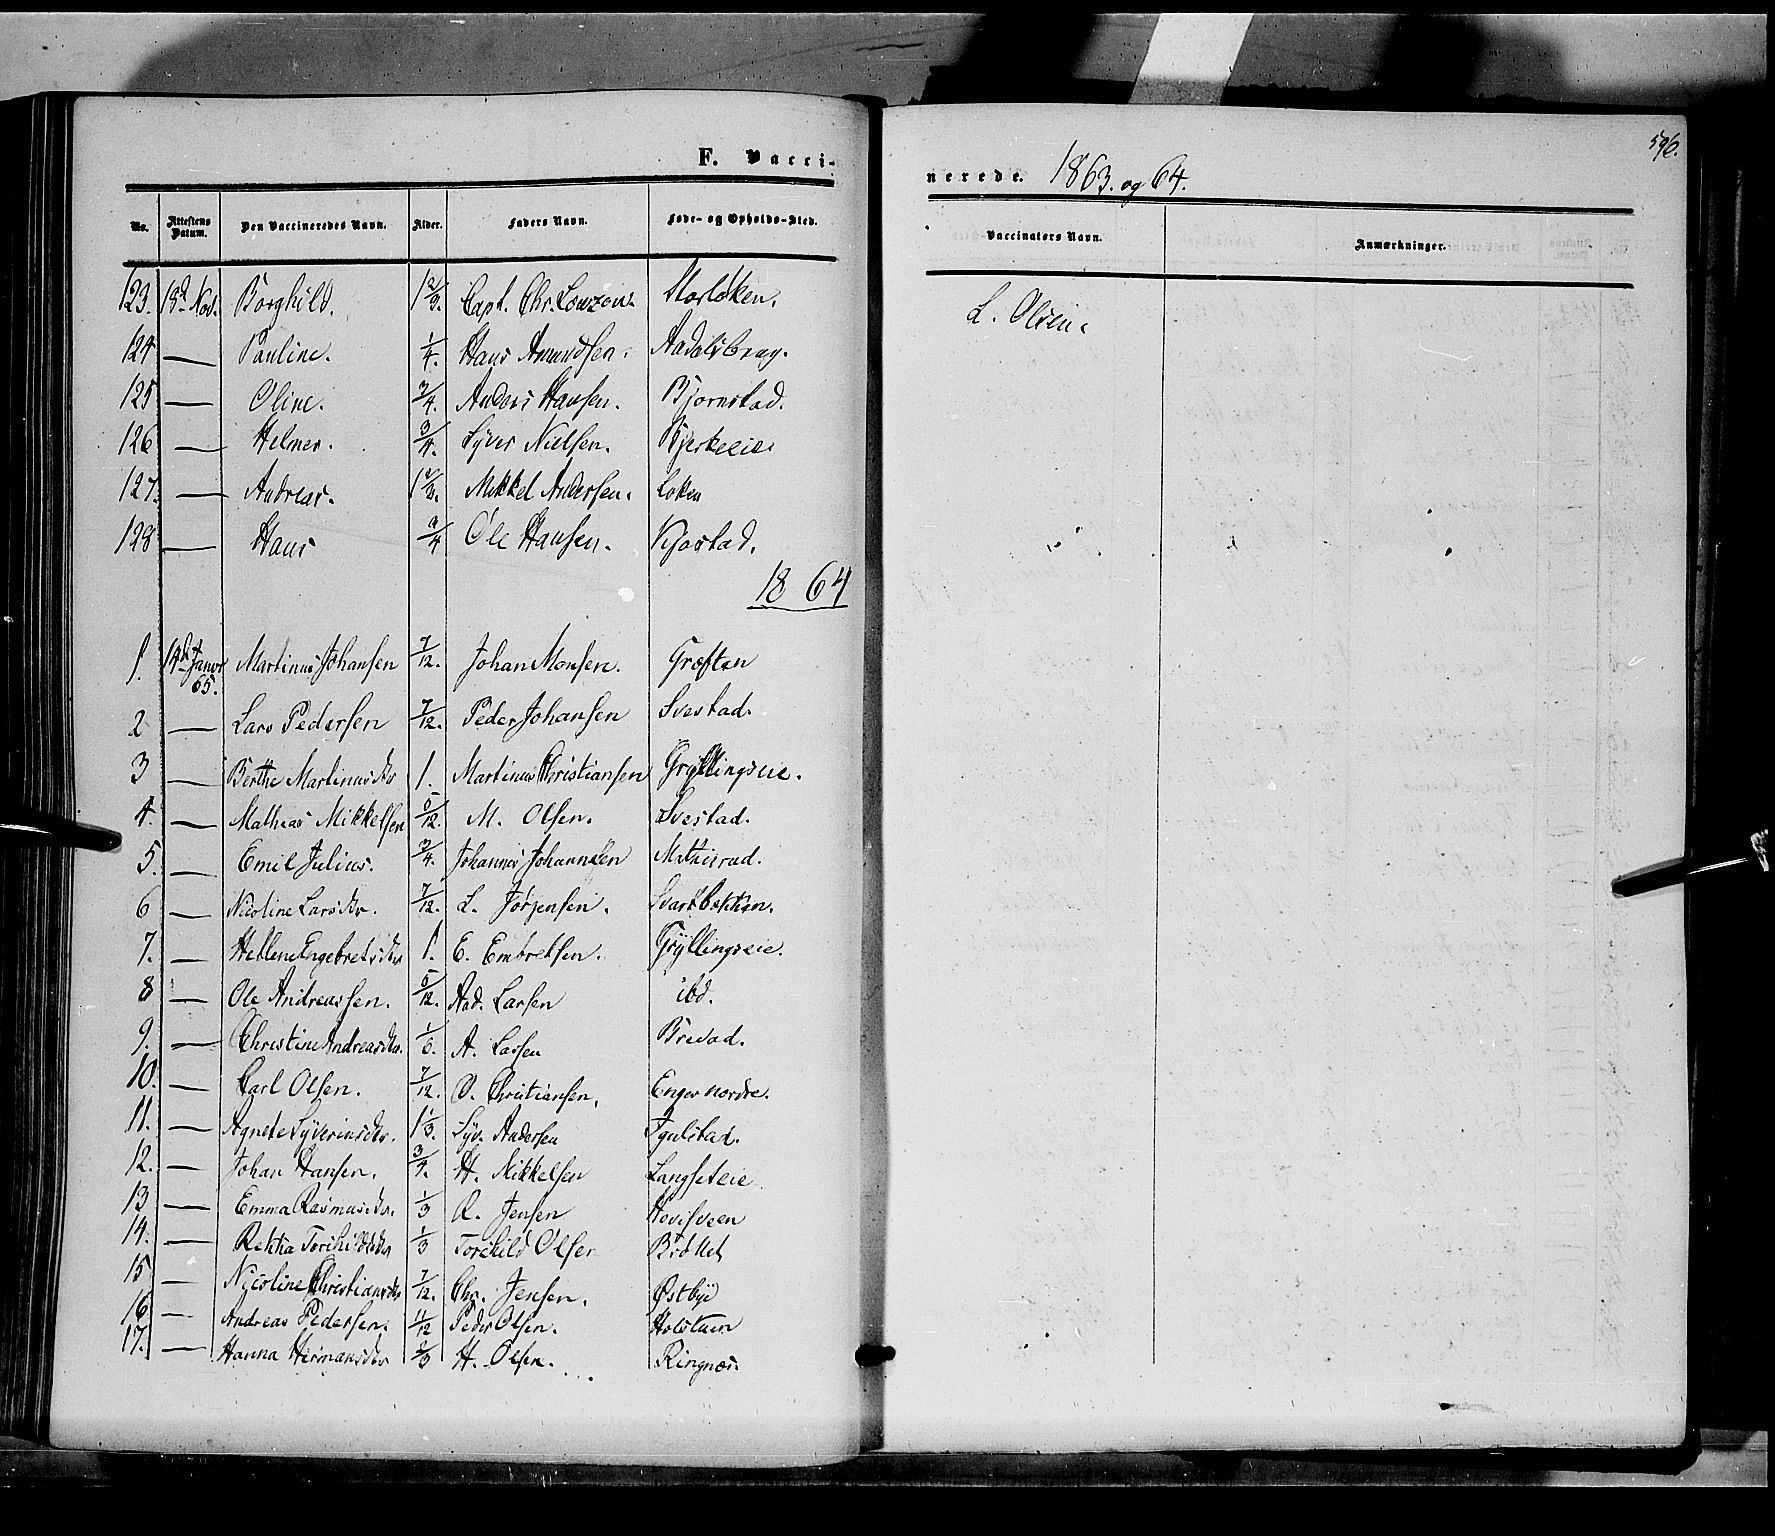 F. Vacci-
nerede. 1863. og 64.
596.
No. Attestens Datum. Den Vaccineredes Navn. Alder. Faders Navn. Føde- og Opholds-Sted. Vaccinators Navn. Anmærkninger.
123. 18d Nov. Borghild. 1 2/3. Capt. Chr. Lowzow. Storløken. L. Olsen.
124 — Pauline. 1/4. Hans Amundsen. Aadalsbrug.
125 — Oline. 3/4. Anders Hansen. Bjørnstad.
126 — Helmer. 3/4. Syver Nielsen. Bjerkeeie
127. — Andreas. Mikkel Andersen. Løken
128 — Hans Ole Hansen. Kjøstad.
1864
1. 14d Januar 65. Martinus Johansen 7/12. Johan Monsen. Grøften
2 — Lars Pedersen 7/12. Peder Johansen Svestad.
3 — Berthe Martinusdtr 1. Martinus Christiansen Gryllingseie.
4. — Mathias Mikkelsen M. Olsen. Svestad.
5. — Emil Julius. 3/4. Johannes Johannesen Mathisrud.
6 — Nicoline Larsdtr. 7/12. L. Jørgensen. Svartbekken.
7. — Hellene Engebretsdtr 1. E. Embretsen. Gryllingseie.
8 — Ole Andreassen. 5/12. And. Larsen ibd.
9. — Christine Andreasdtr. 1/6. A. Larsen
10. — Carl Olsen. 7/12. O. Christiansen. Enger nordre.
11. — Agnete Syverinsdtr. 1 1/3. Syv. Andersen Fjulstad.
12. — Johan Hansen. 3/4. H. Mikkelsen Langseteie
13 — Emma Rasmusdtr. 1/3 R. Jensen Hovisveen
14. — Torchildsdtr 1/3 Torchild Olsen
15 — Nicoline Christiansdtr 7/12. Chr. Jensen. Østbye
16 — Andreas Pedersen. 11/12 Peder Olsen. Holstuen
17. — Hanna Hermansdtr 2/3 H. Olsen. Ringnæs.